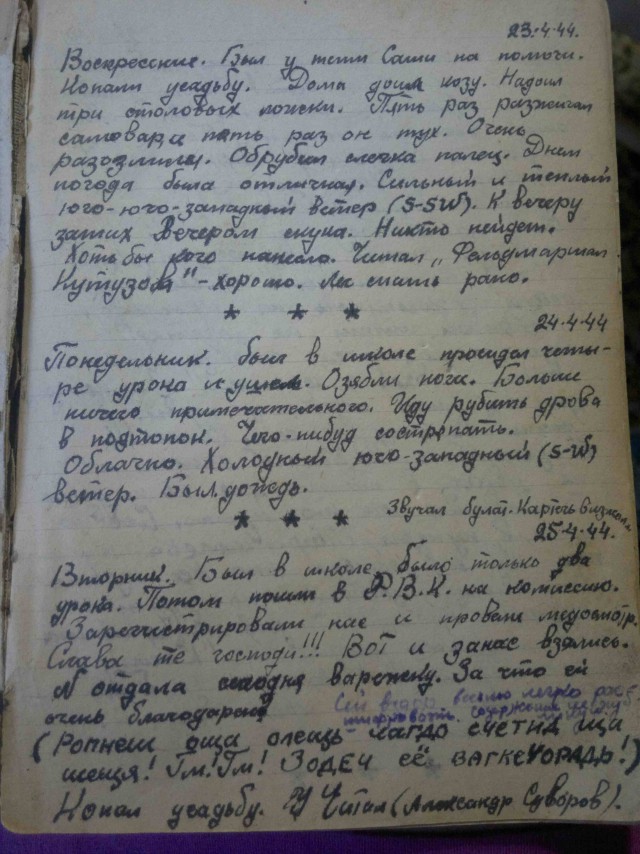 23·4·44.
Воскресение. Был у тети Саши на помочи.
Копали усадьбу. Дома доил козу. Надоил
три столовых ложки. Пять раз разжигал
самовар и пять раз он тух. Очень
разозлился. Обрубил слегка палец. Днем
погода была отличная. Сильный и теплый
юго-юго-западный ветер (S-SW). К вечеру
затих. Вечером скука. Никто нейдет.
Хоть бы кого нанесло. Читал „Фельдмаршал
Кутузов" - хорошо. Лег спать рано.
* * *
24·4·44
Понедельник. был в школе просидел четы-
ре урока и ушел. Озябли ноги. Больше
ничего примечательного. Иду рубить дрова
в подтопок. Чего-нибуд состряпать.
Облачно. Холодный юго-западный (S-W)
ветер. Был дождь.
* * * Звучал булат. Картечь визжала
25·4·44.
Вторник. Был в школе было только два
урока. Потом пошли в Р.В.К. на комиссию.
Зарегистрировали нас и провели медосмотр.
Слава те господи!!! Вот и занас взялись.
N отдала сегодня варежку. За что ей
очень благодарен
легко рас-
шифровать. содержимое
(Ропнеш оща олещь чагдо счетид щи
шещя! Гм! Гм! Зодеч её вагкечорадь!)
Копал усадьбу. Читал (Александр Суворов).